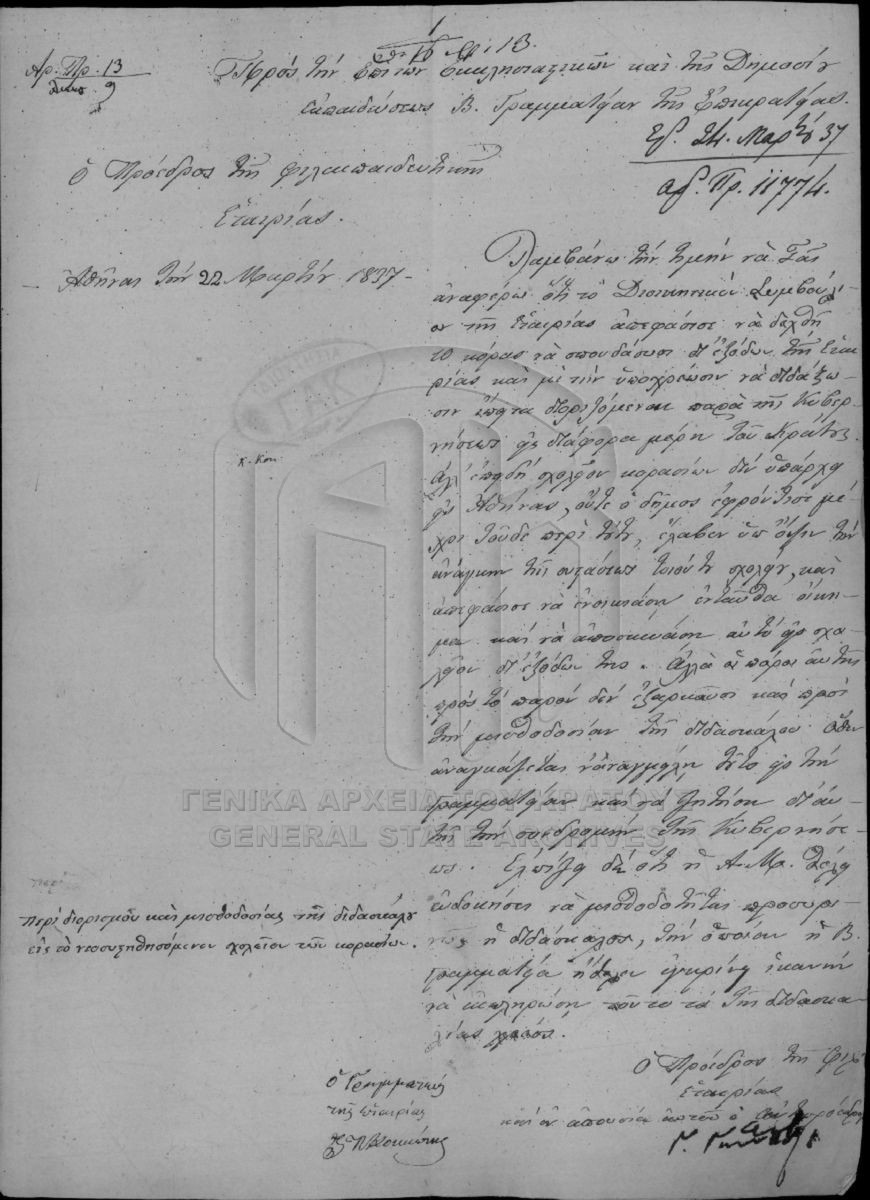 Αρ. Πρ. 13
9
Πρός την Επί των Εκκλησιαστικών και της Δημοσίου
εκπαιδεύσεως Β. Γραμματείαν της Επικρατείας.
24. Μαρτίου 37
αρ. Πρ. 11774.
Ο Πρόεδρος της φιλεκπαιδευτικής
Εταιρίας.
Αθήνας την 22 Μαρτίου 1837-
Λαμβάνω την τιμήν να Σας
αναφέρω ότι το Διοικητικόν Συμβούλι-
ον της Εταιρίας απεφάσισε να δεχθή
10 κόρας να σπουδάσωσι δι' εξόδων της Εται-
ρίας και με την υποχρέωσιν να διδάξω-
σιν έπειτα διοριζόμεναι παρά της Κυβερ-
νήσεως εις διάφορα μέρη του Κράτους.
Αλλ' επειδή σχολείον κορασίων δεν υπάρχει
εις Αθήνας, ούτε ο δήμος εφρόντισε μέ-
χρι τούδε περί τούτου, έλαβεν υπ' όψιν την
ανάγκην της συστάσεως τοιούτου σχολείου, και
απεφάσισε να ενοικιάση ενταύθα οίκη-
μα και να αποσκευάση αυτό εις σχο-
λείον δι' εξόδων της. Αλλά οι πόροι αυτής
προς το παρόν δεν εξαρκούσι και προς
την μισθοδοσίαν της διδασκάλου όθεν
αναγκάζεται να αναγγείλη τούτο εις την
Γραμματείαν και να ζητήση δι' αυ-
της την συνδρομήν της Κυβερνήσε-
ως. Ελπίζει δε ότι η Α. Μ. θέλει
ευδοκήσει να μισθοδοτήται προσωρι-
νώς η διδάσκαλος, την οποίαν η Β.
Γραμματεία ήθελεν εγκρίνη ικανήν
να εκπληρώση τούτο το της διδασκα-
λίας χρέος.
Κ. Κοκ.
Περί διορισμού και μισθοδοσίας της διδασκάλου
εις το νεοσυστηθησόμενον σχολείον των κορασίων.
Ο Πρόεδρος της Φιλ.
Εταιρίας
και εν απουσία αυτού ο αντιπρόεδρος
Γ. Γεννάδιος
Ο Γραμματεύς
της Εταιρίας
Ι. Π. Κοκκώνης
ΓΕΝΙΚΑ ΑΡΧΕΙΑ ΤΟΥ ΚΡΑΤΟΥΣ
GENERAL STATE ARCHIVES